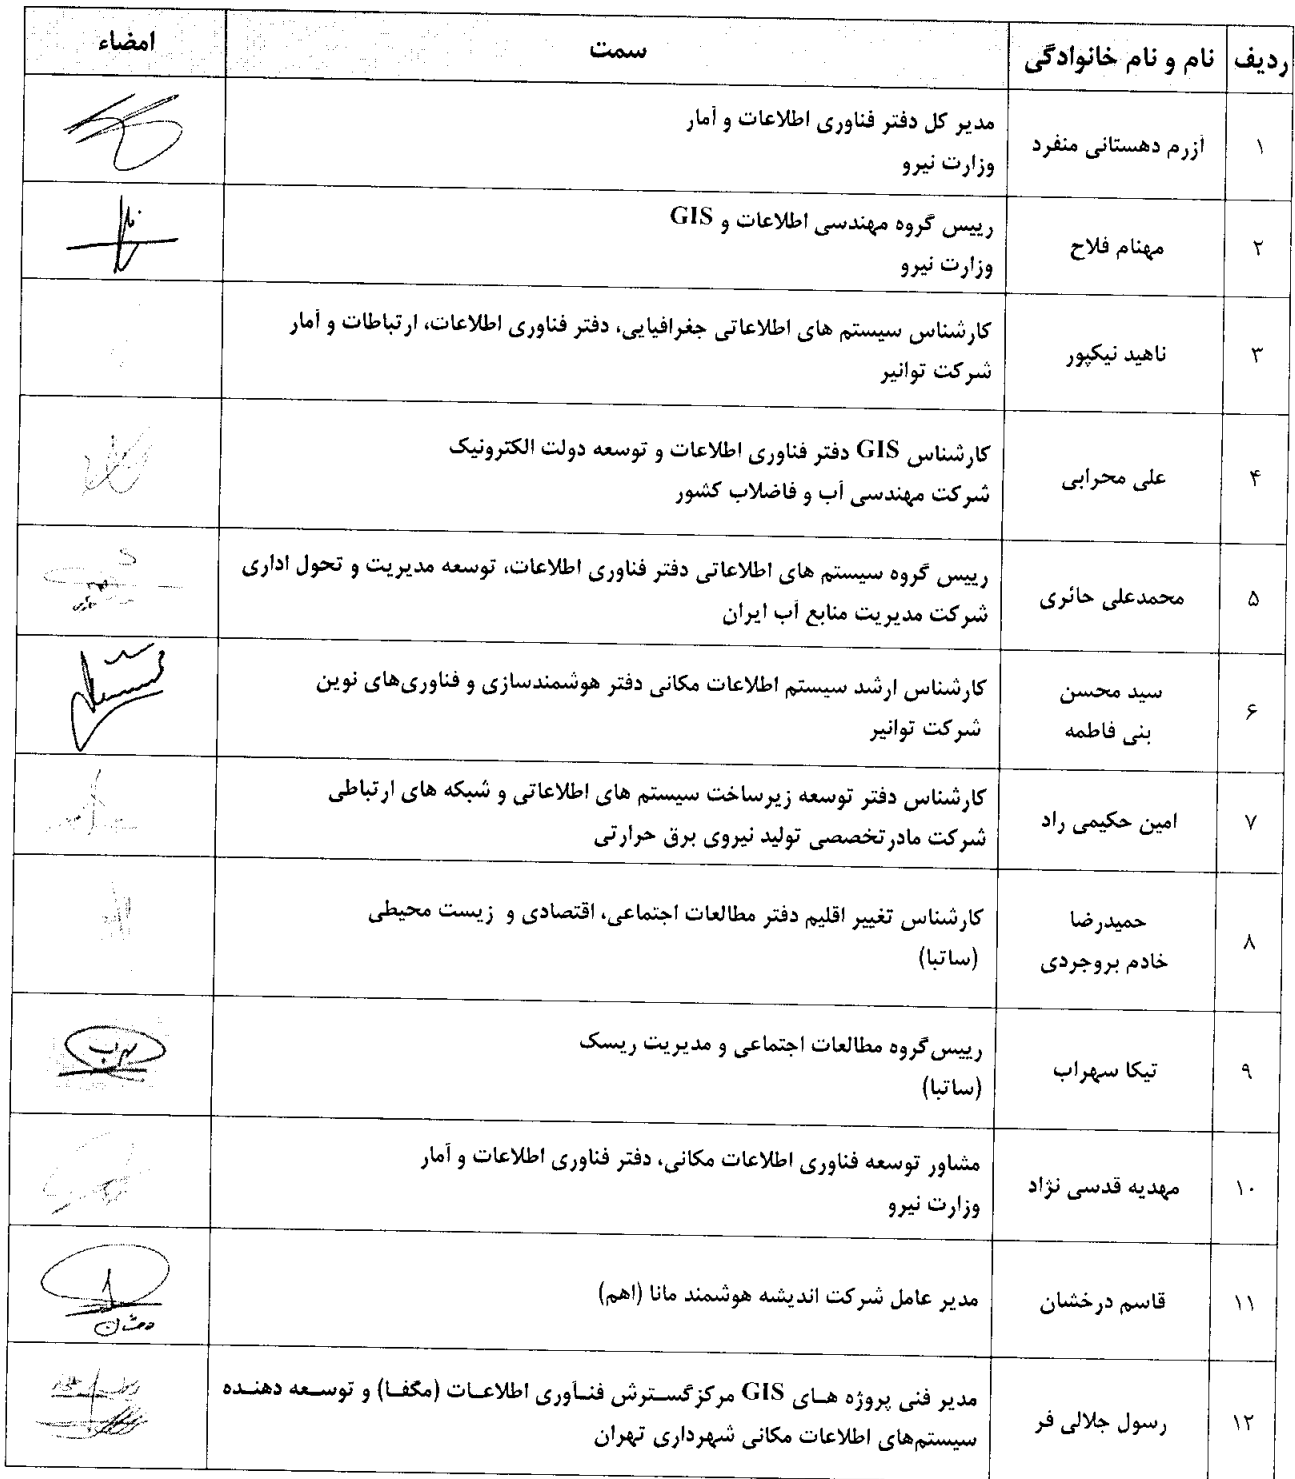 ردیف نام و نام خانوادگی سمت امضاء
۱ آزرم دهستانی منفرد مدیر کل دفتر فناوری اطلاعات و آمار
وزارت نیرو
۲ مهنام فلاح رییس گروه مهندسی اطلاعات و GIS
وزارت نیرو
۳ ناهید نیکپور کارشناس سیستم های اطلاعاتی جغرافیایی، دفتر فناوری اطلاعات، ارتباطات و آمار
شرکت توانیر
۴ علی محرابی کارشناس GIS دفتر فناوری اطلاعات و توسعه دولت الکترونیک
شرکت مهندسی آب و فاضلاب کشور
۵ محمدعلی حائری رییس گروه سیستم های اطلاعاتی دفتر فناوری اطلاعات، توسعه مدیریت و تحول اداری
شرکت مدیریت منابع آب ایران
۶ سید محسن کارشناس ارشد سیستم اطلاعات مکانی دفتر هوشمندسازی و فناوری‌های نوین
بنی فاطمه شرکت توانیر
۷ امین حکیمی راد کارشناس دفتر توسعه زیرساخت سیستم های اطلاعاتی و شبکه های ارتباطی
شرکت مادرتخصصی تولید نیروی برق حرارتی
۸ حمیدرضا کارشناس تغییر اقلیم دفتر مطالعات اجتماعی، اقتصادی و زیست محیطی
خادم بروجردی (ساتبا)
۹ تیکا سهراب رییس‌گروه مطالعات اجتماعی و مدیریت ریسک
(ساتبا)
۱۰ مهدیه قدسی نژاد مشاور توسعه فناوری اطلاعات مکانی، دفتر فناوری اطلاعات و آمار
وزارت نیرو
۱۱ قاسم درخشان مدیر عامل شرکت اندیشه هوشمند مانا (اهم)
۱۲ رسول جلالی فر مدیر فنی پروژه هـای GIS مرکزگسـترش فنـآوری اطلاعـات (مگفـا) و توسـعه دهنـده
سیستم‌های اطلاعات مکانی شهرداری تهران